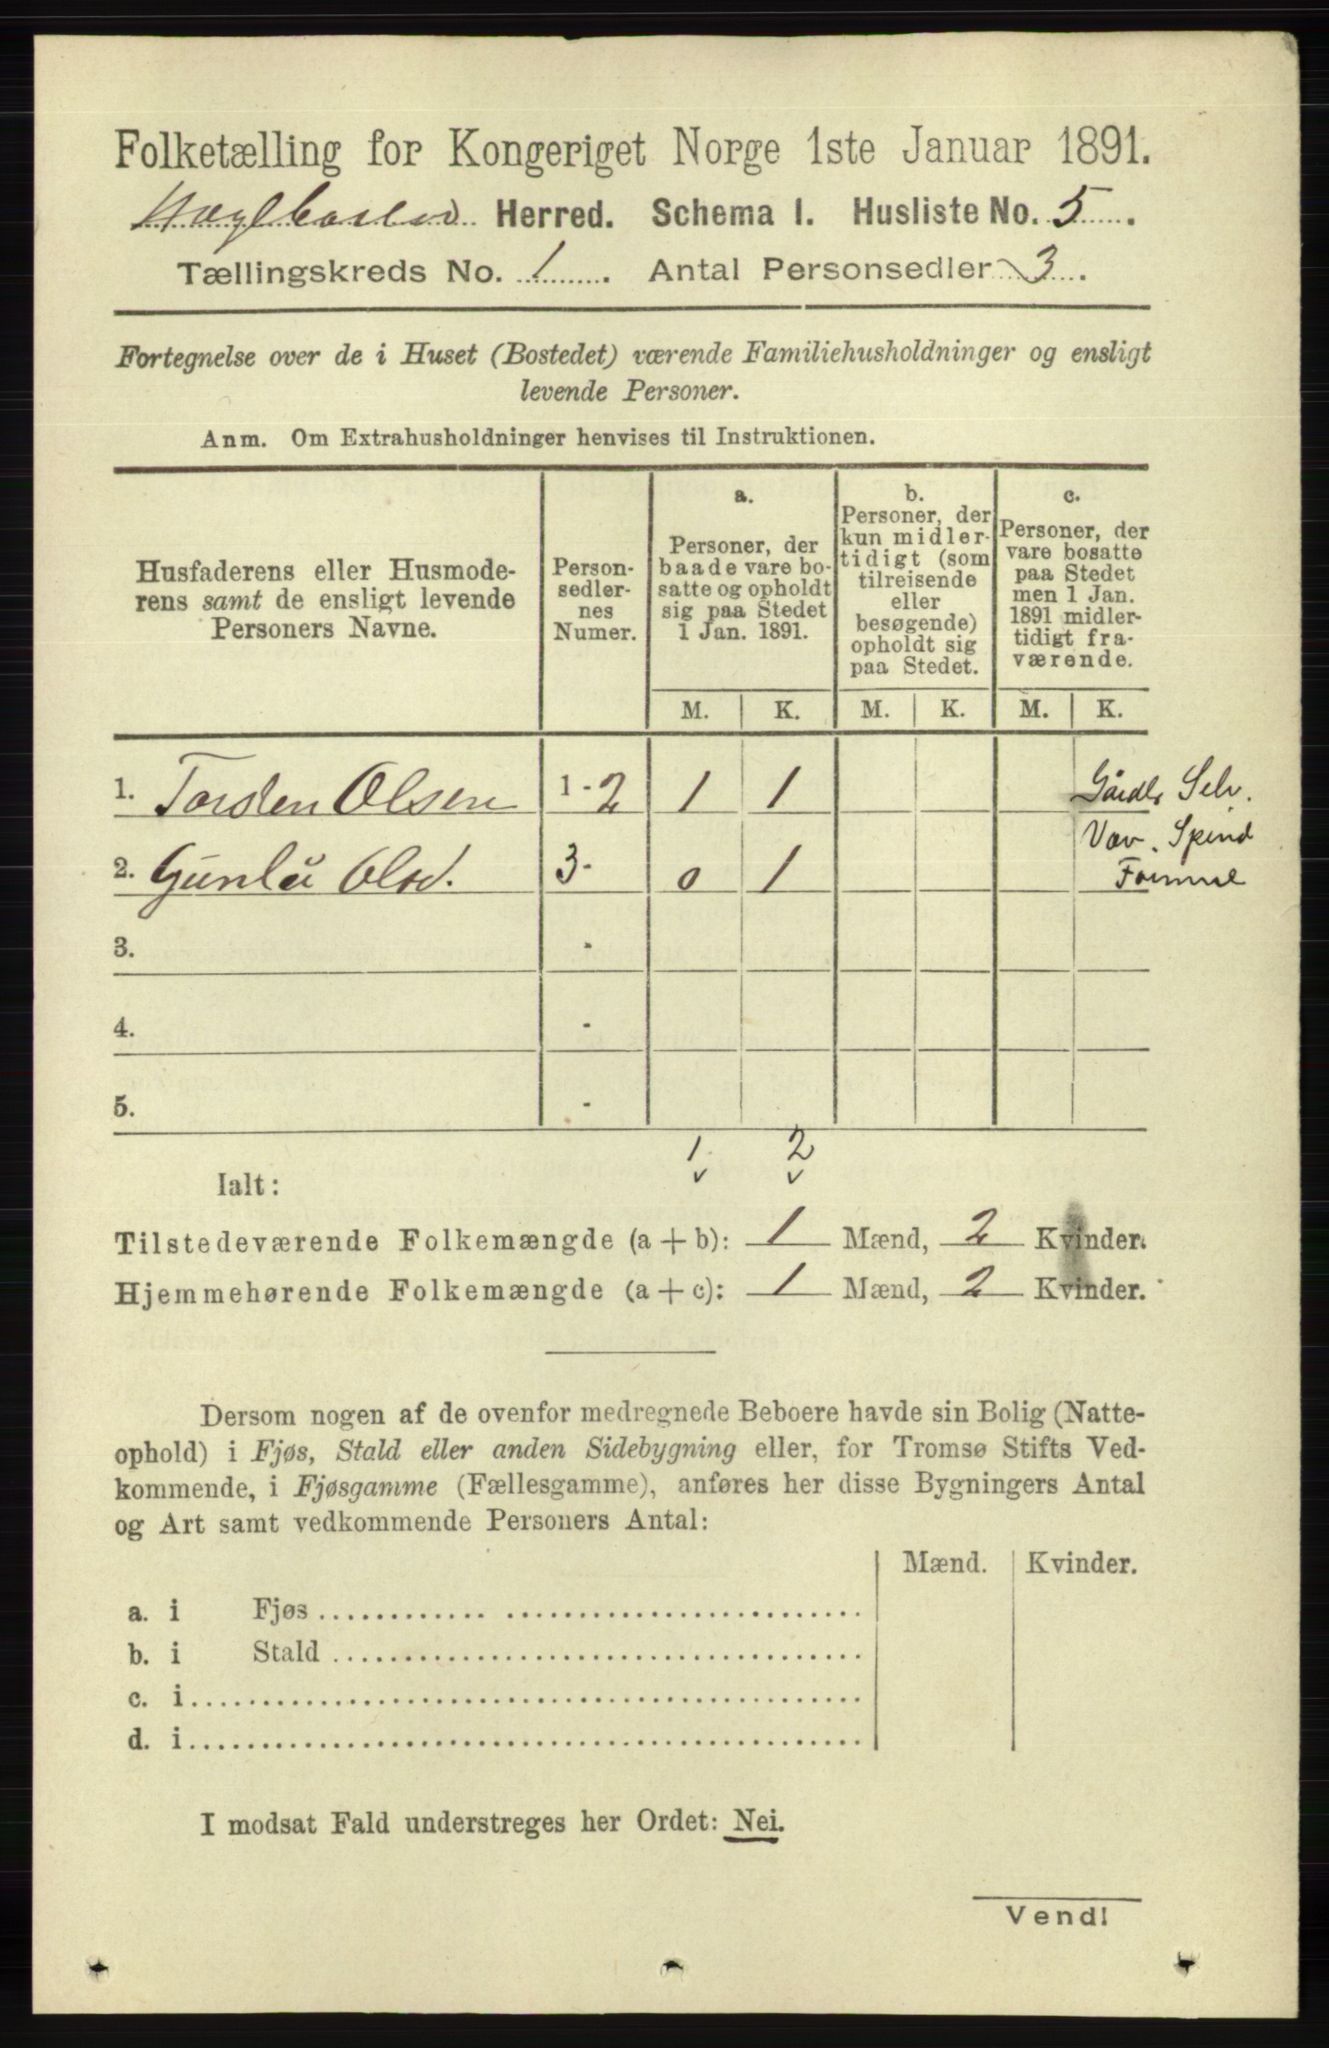 Folketælling for Kongeriget Norge 1ste Januar 1891.
Hægebostad Herred. Schema I. Husliste No. 5.
Tællingskreds No. 1. Antal Personsedler 3.
Fortegnelse over de i Huset (Bostedet) værende Familiehusholdninger og ensligt
levende Personer.
Anm. Om Extrahusholdninger henvises til Instruktionen.
Husfaderens eller Husmode-
rens samt de ensligt levende
Personers Navne.
Person-
sedler-
nes
Numer.
a.
Personer, der
baade vare bo-
satte og opholdt
sig paa Stedet
1 Jan. 1891.
b.
Personer, der
kun midler-
tidigt (som
tilreisende
eller
besøgende)
opholdt sig
paa Stedet.
c.
Personer, der
vare bosatte
paa Stedet
men 1 Jan.
1891 midler-
tidigt fra-
værende.
M. K. M. K. M. K.
1. Torsten Olsen 1-2 1 1 Gårdbr Selv.
Væv. Spind
2. Gunla Olsd. 3- 0 1
3. -
4. -
5. -
1 2
Ialt:
Tilstedeværende Folkemængde (a + b): 1 Mænd, 2 Kvinder.
Hjemmehørende Folkemængde (a + c): 1 Mænd, 2 Kvinder.
Dersom nogen af de ovenfor medregnede Beboere havde sin Bolig (Natte-
ophold) i Fjøs, Stald eller anden Sidebygning eller, for Tromsø Stifts Ved-
kommende, i Fjøsgamme (Fællesgamme), anføres her disse Bygningers Antal
og Art samt vedkommende Personers Antal:
Mænd. Kvinder.
a. i Fjøs
b. i Stald
c. i
d. i
I modsat Fald understreges her Ordet: Nei.
Vend!